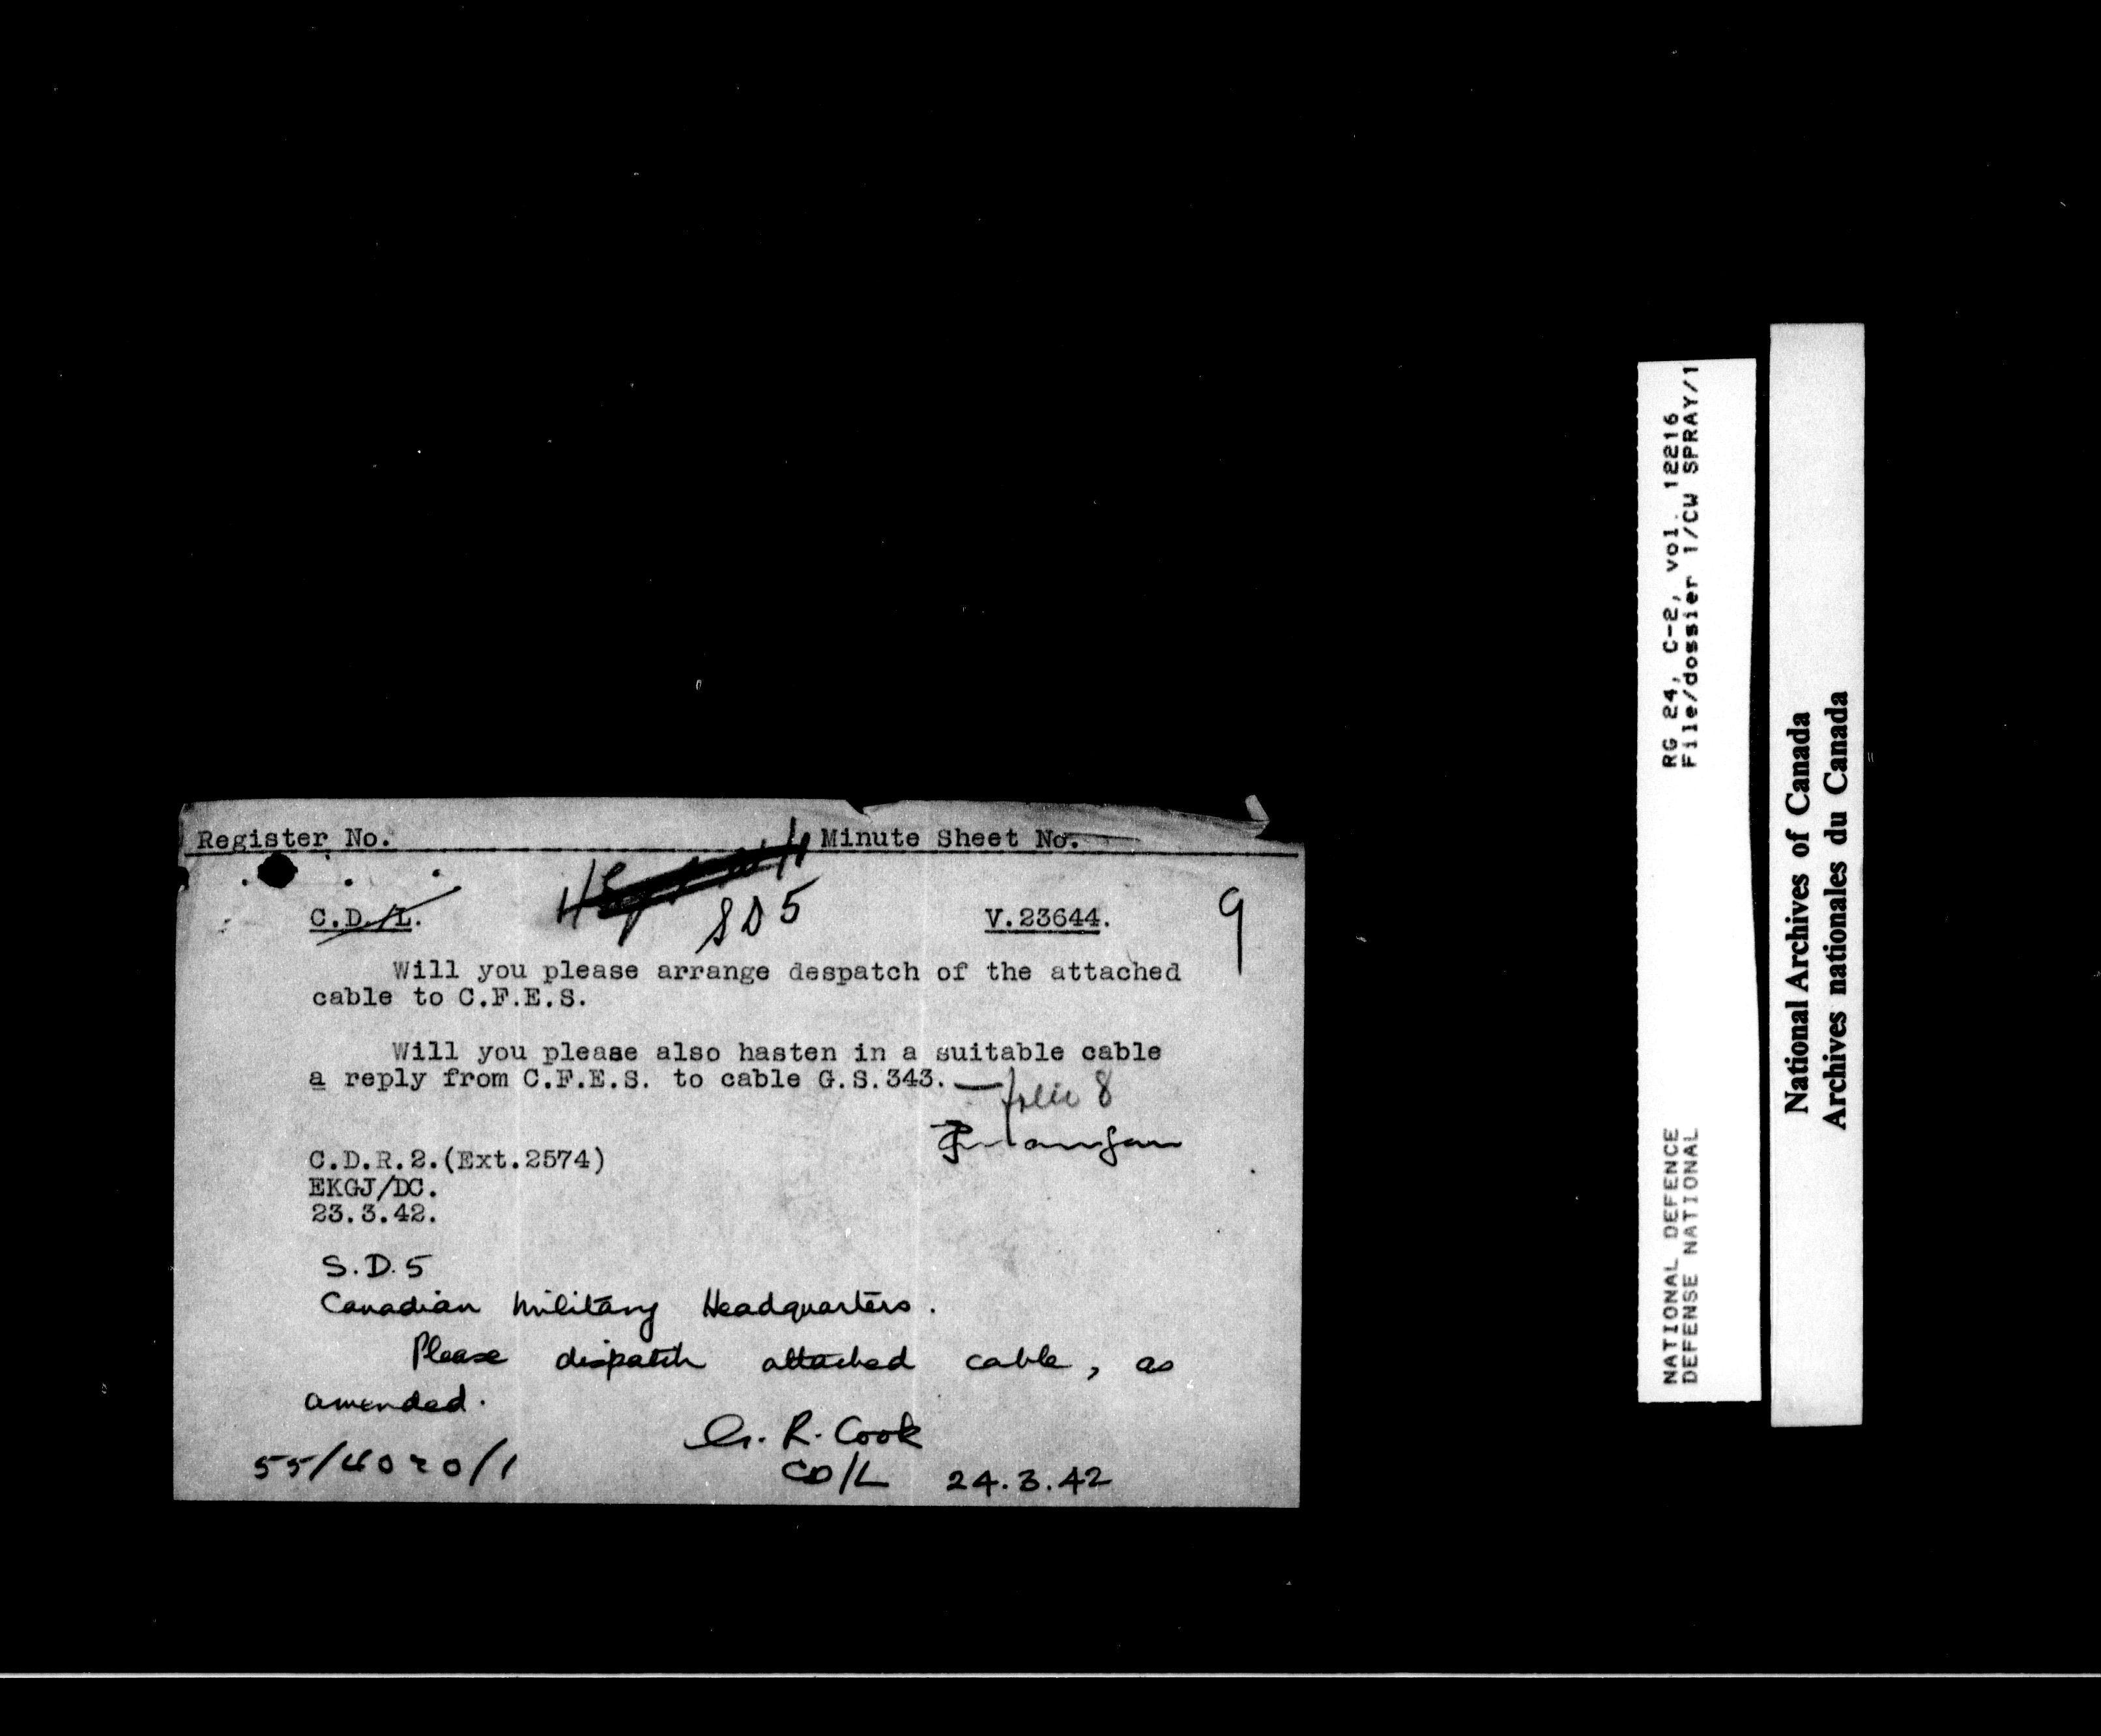 Register No. Minute Sheet No.
C.D./L. V.23644. 9
SD5
Will you please arrange despatch of the attached
cable to C.F.E.S.
Will you please also hasten in a suitable cable
a reply from C.F.E.S. to cable G.S.343. — folio 8
C.D.R.2.(Ext.2574)
EKGJ/DC.
23.3.42.
S.D.5
Canadian Military Headquarters.
Please dispatch attached cable, as
amended.
G. R. Cook
55/4020/1 CD/L 24.3.42
RG 24, C-2, vol. 12216
File/dossier 1/CW SPRAY/1
NATIONAL DEFENCE
DEFENSE NATIONAL
National Archives of Canada
Archives nationales du Canada